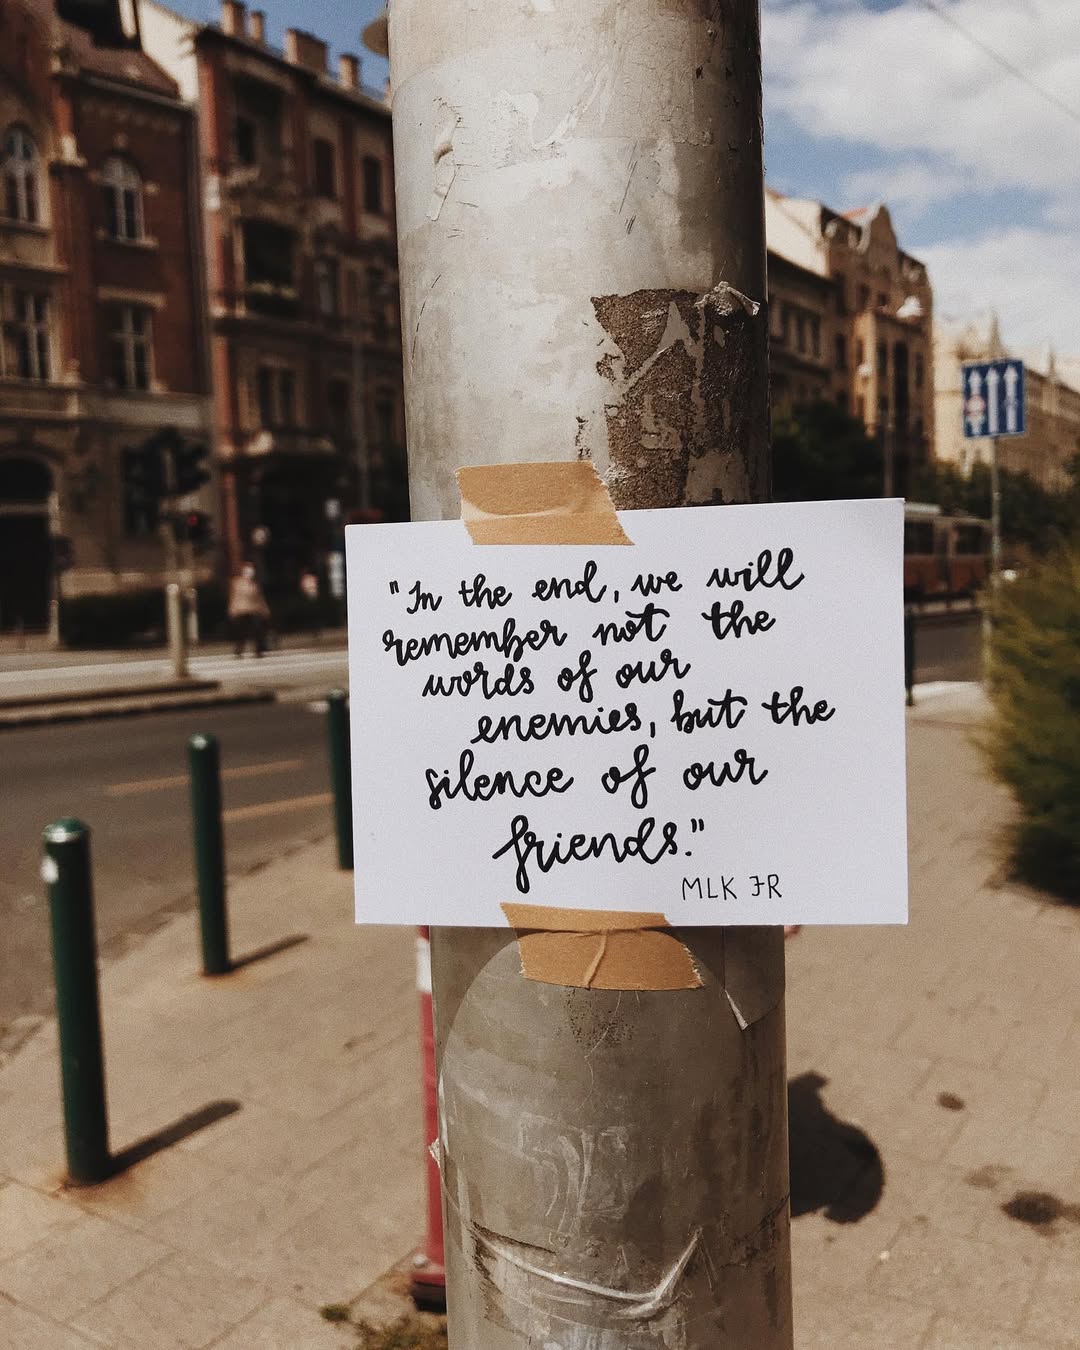 "In the end, we will
remember not the
words of our
enemies, but the
silence of our
friends."
MLK JR